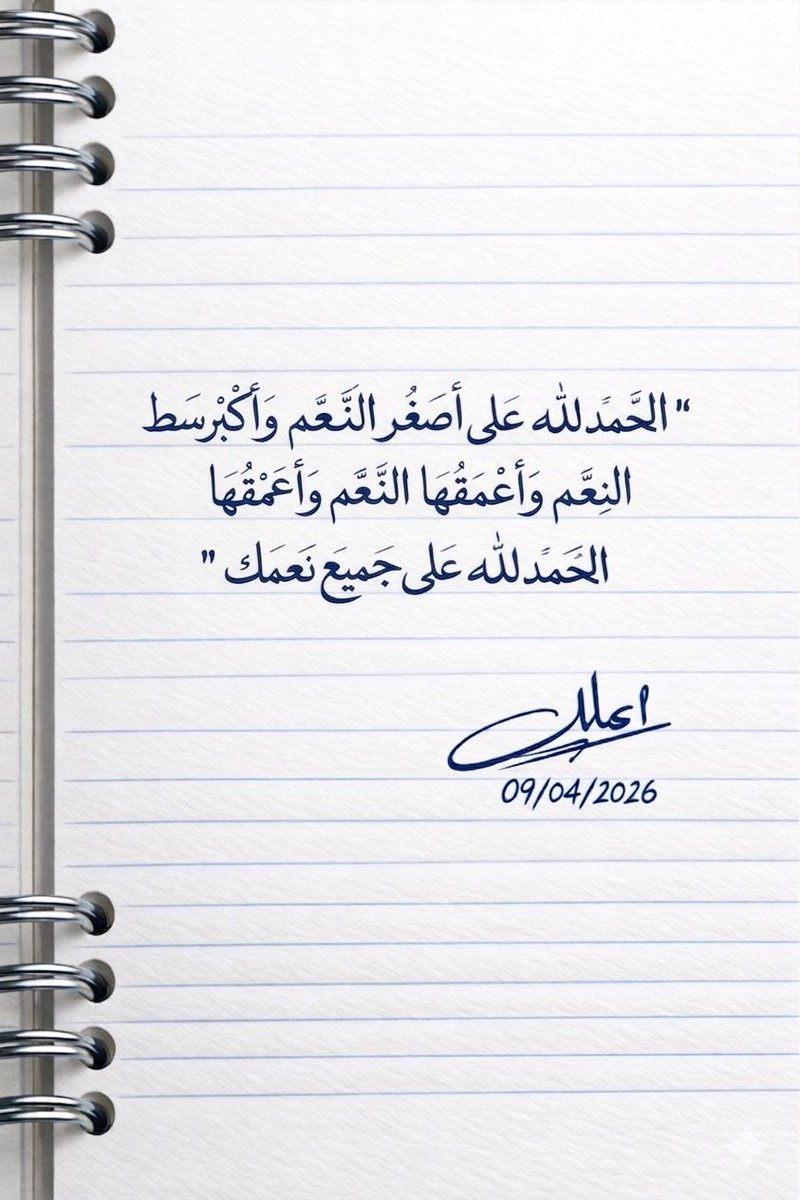 " الحَّمدًلله عَلى أصَغُر النَّعَّم وَأكْبْرسَط
النِعَّم وَأعْمَقُهَا النَّعَّم وَأعَمْقُهَا
الحَمدًلله عَلى جَميَع نَعمَك "
09/04/2026